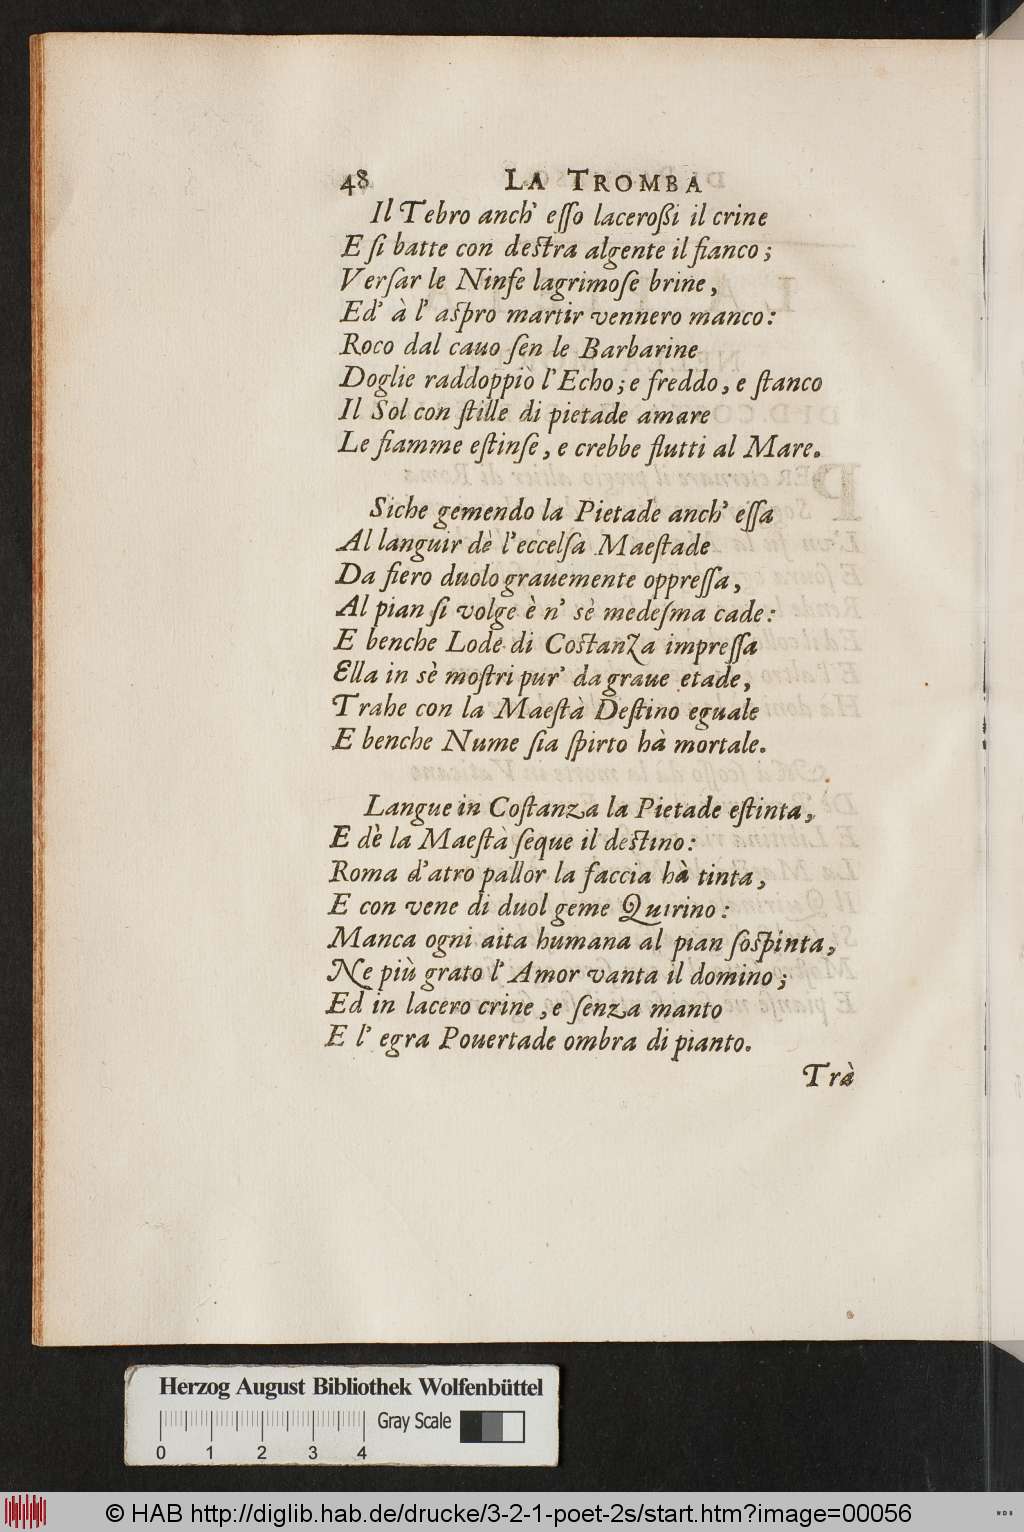 48 LA TROMBA
Il Tebro anch' eſſo laceroßi il crine
E ſi batte con deſtra algente il fianco;
Verſar le Ninfe lagrimoſe brine,
Ed' à l' aſpro martir vennero manco:
Roco dal cauo ſen le Barbarine
Doglie raddoppiò l'Echo; e freddo, e ſtanco
Il Sol con ſtille di pietade amare
Le fiamme eſtinſe, e crebbe flutti al Mare.
Siche gemendo la Pietade anch' eſſa
Al languir dè l'eccelſa Maeſtade
Da fiero duolo grauemente oppreſſa,
Al pian ſi volge è n' sè medeſma cade:
E benche Lode di Coſtanza impreſſa
Ella in sè moſtri pur' da graue etade,
Trahe con la Maeſtà Deſtino eguale
E benche Nume ſia ſpirto hà mortale.
Langue in Coſtanza la Pietade eſtinta,
E dè la Maeſtà ſeque il deſtino:
Roma d'atro pallor la faccia hà tinta,
E con vene di duol geme Quirino:
Manca ogni aita humana al pian ſoſpinta,
Ne più grato l' Amor vanta il domino;
Ed in lacero crine, e ſenza manto
E l' egra Pouertade ombra di pianto.
Trà
Herzog August Bibliothek Wolfenbüttel
Gray Scale
0 1 2 3 4
© HAB http://diglib.hab.de/drucke/3-2-1-poet-2s/start.htm?image=00056